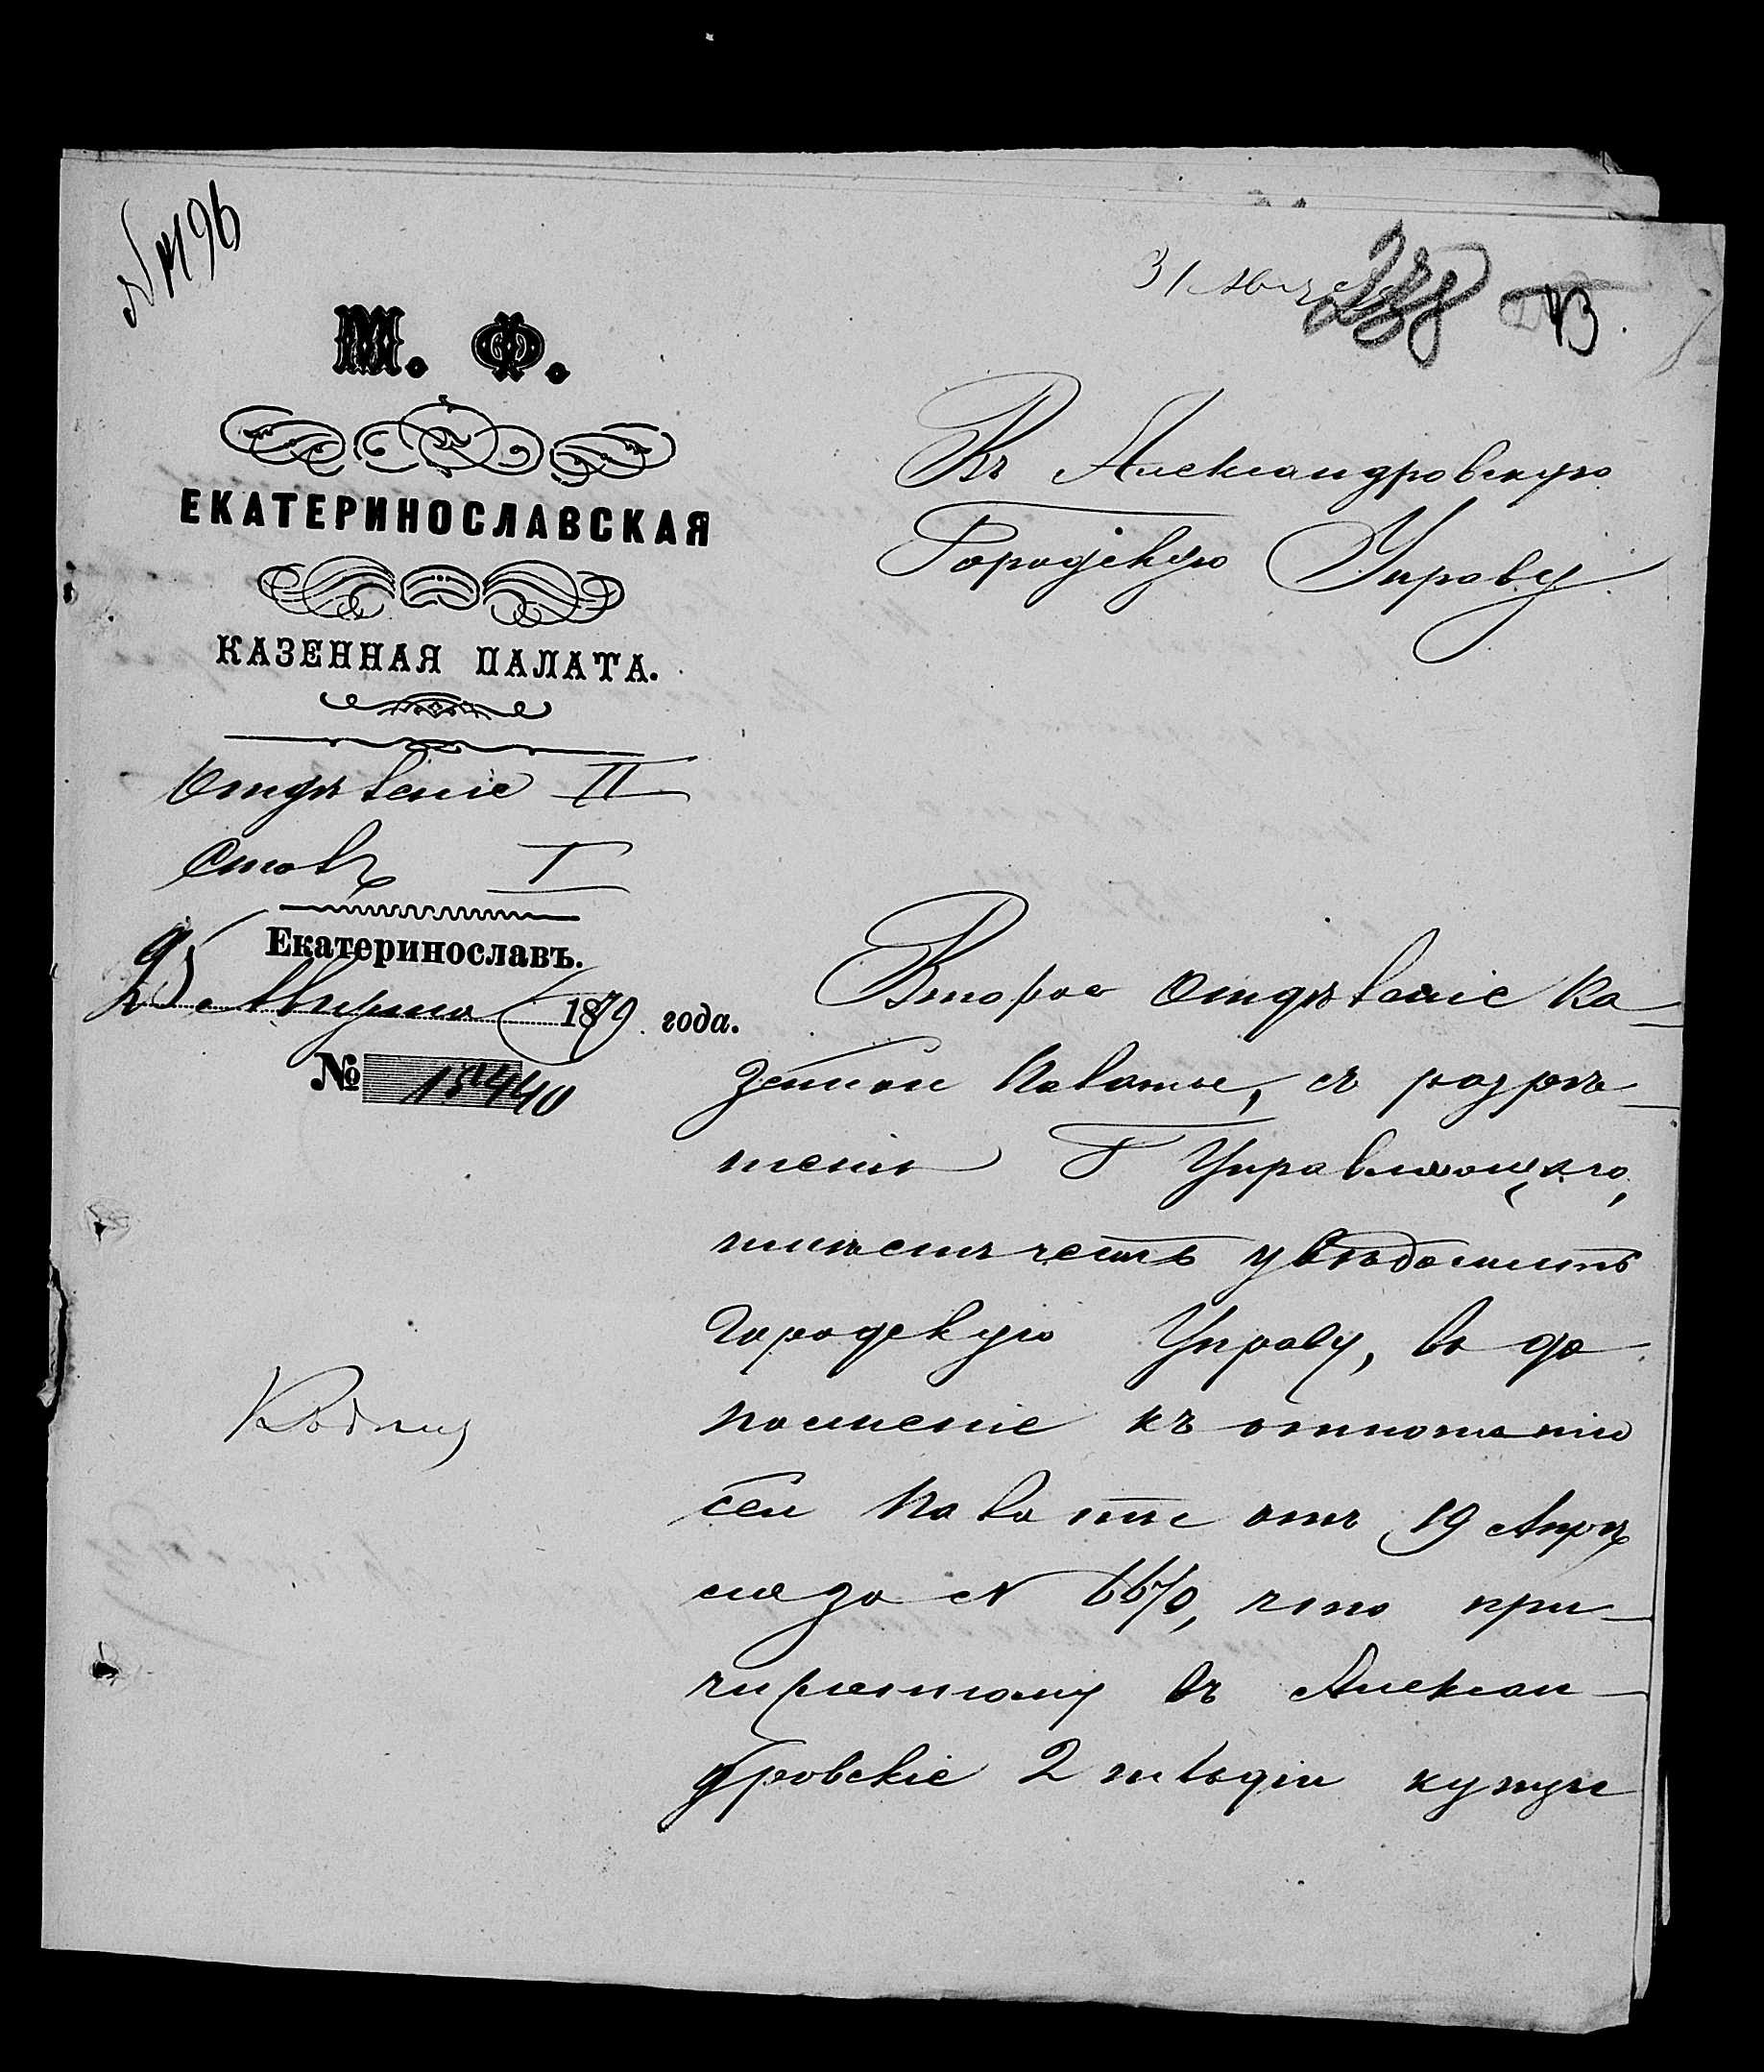 31 Августа
М. Ф.
ЕКАТЕРИНОСЛАВСКАЯ
КАЗЕННАЯ ПАЛАТА.
Отдѣленіе II
Столъ I
Екатеринославъ.
25 Августа 1879 года.
№ 15440
Въ Александровскую
Городскую Управу.
Второе Отдѣленіе Ка-
зенной Палаты, съ разрѣ-
шенія Г Управляющаго,
имѣетъ честь увѣдомить
Городскую Управу, въ до
полненіе къ отношенію
сей Палаты отъ 19 Апрѣ
ля за № 6670, что при-
численному въ Алексан-
дровскіе 2 гильдіи купцы